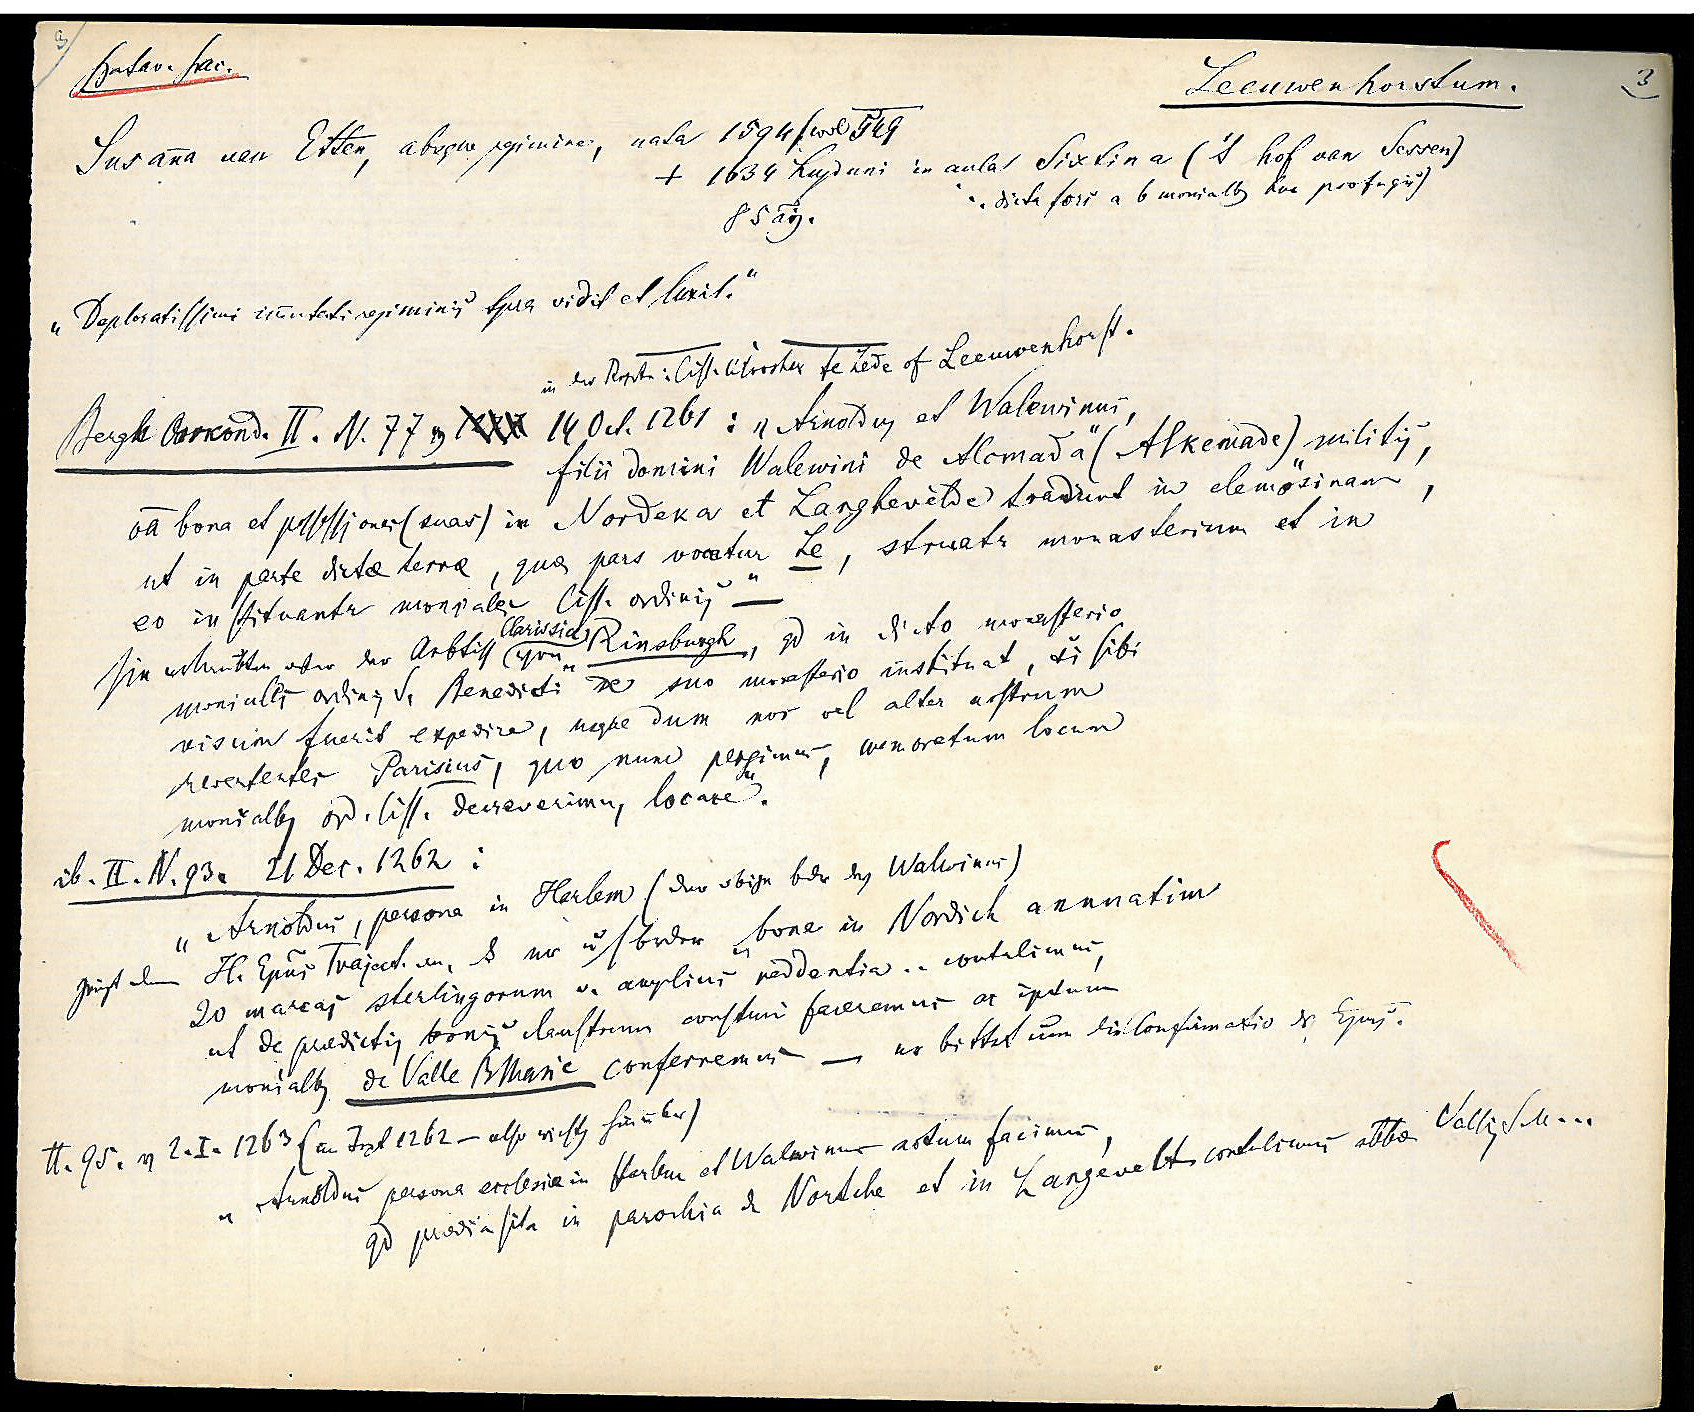 3
Batav. sac.
Leeuwenhorstum.
3
Susanna van Etten, absque regimine, nata 1594 (wol 1549
+ 1634 Lugduni in aula Sixtina ('t hof van Sessen)
.. dicta fori a 6 monialb huc profugis)
85 ag.
"Deploratissimi immutati regiminis spra vidit et luxit."
in der : Cist. te Lede of Leeuwenhorst.
Bergh Oorkond. II. N. 77 14 Oct. 1261 : "Arnoldus et Walewinus,
filii domini Walewini de Alcmada" (Alkemade) militis,
oa bona et possessiones (suas) in Nordeka et Langhevelde tradunt in elemosinam,
ut in parte dictæ terræ, quæ pars vocatur Le, struatr monasterium et in
eo instituantr moniales Cist. ordinis" —
sie erlaubten der Abtiss Clarissia von "Rinsburgh, qd in dicto monasterio
moniales ordinis S. Benedicti de suo monasterio instituat, si sibi
visum fuerit expedire, usque dum nos vel alter nostrum
revertentes Parisius, quo nunc pergimus, memoratum locum
monialb ord. Cist. decreverimus locare".
ib. II. N. 93. 21 Dec. 1262 :
"Arnoldus, persona in Harlem (der obige bdr des Walwinus)
zeigt dem H. Epus Traject. an, bruder "bona in Nordich annuatim
20 marcas sterlingorum v. amplius reddentia .. contulimus,
ut de prædictis bonis claustrum construi faceremus ac ipsum
monialb de Valle B Marie conferremus — er bittet um die Confirmatio ds Epus.
II. 95. 2. I. 1263 (im Txt 1262 — also richtig hinüber)
"Arnoldus persona ecclesiæ in Harlem et Walwinus notum facimus,
qd prædia sita in parochia de Nortche et in Langevelt contulimus abbæ Vallis S. M...